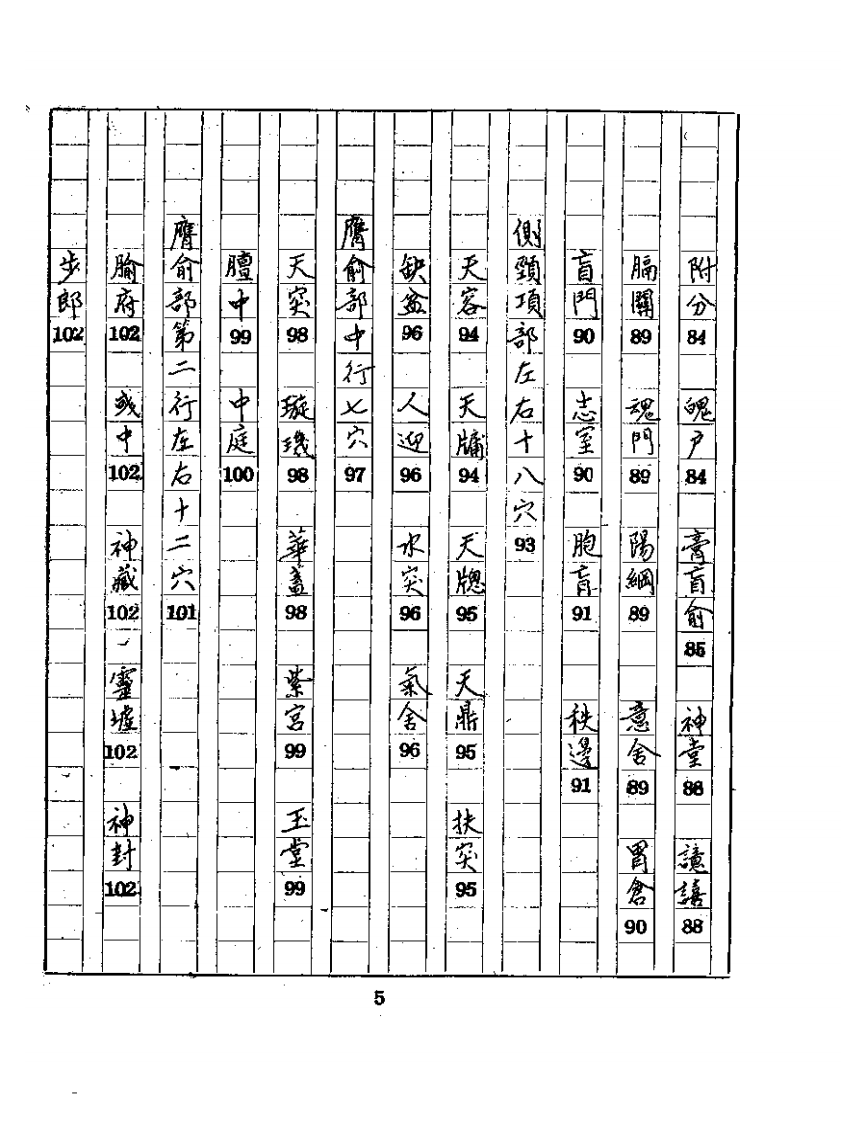 附分84 魄户84 膏盲俞85 神堂88 譩譆88
膈關89 魂門89 陽綱89 意舍89 胃倉90
盲門90 志室90 胞盲91 秩邊91
側頸項部左右十八穴93
天容94 天牖94 天牕95 天鼎95 扶突95
缺盆96 人迎96 水突96 氣舍96
膺俞部中行七穴97
天突98 璇璣98 華蓋98 紫宮99 玉堂99
膻中99 中庭100
膺俞部第二行左右十二穴101
腧府102 彧中102 神藏102 靈墟102 神封102
步郎102
5